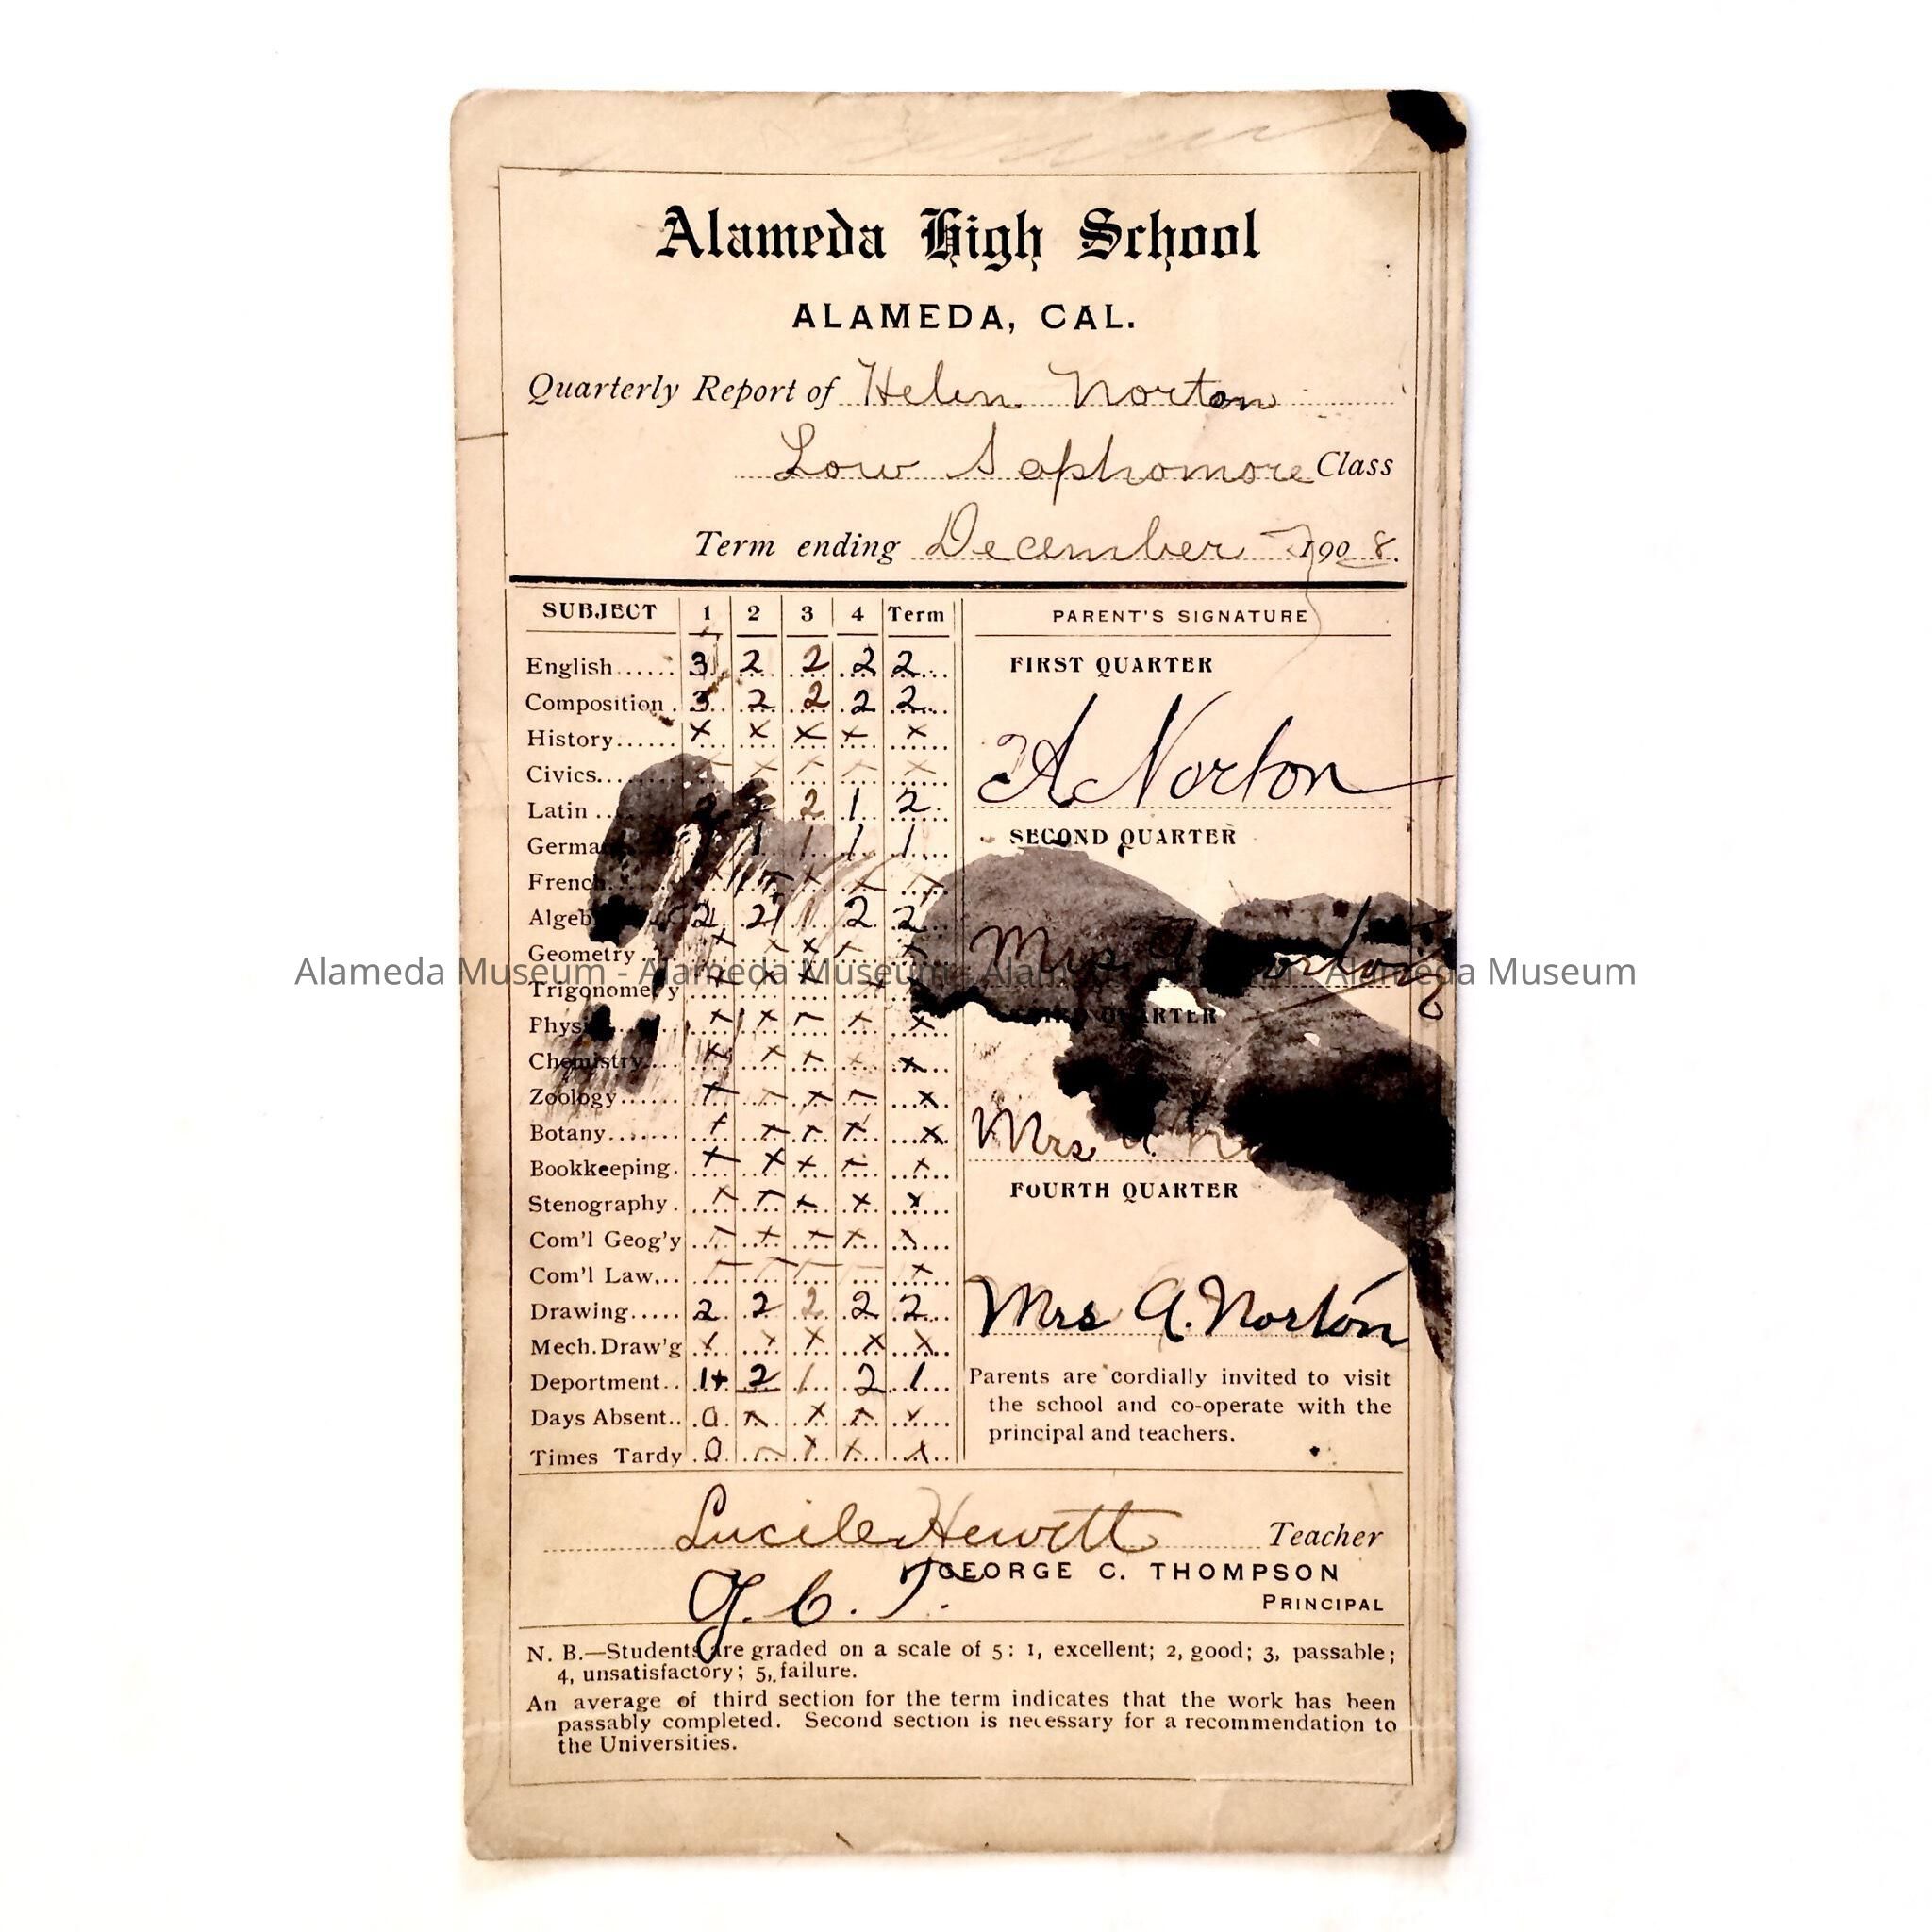 Alameda High School
ALAMEDA, CAL.
Quarterly Report of Helen Norton
Low Sophomore Class
Term ending December 1908.
SUBJECT 1 2 3 4 Term
English...... 3 2 2 2 2
Composition . 3 2 2 2 2
History...... x x x x x
Civics.... x x x x
Latin .. 2 2 2 1 2
German 1 1 1 1
French x x x x x
Algeb 2 2 1 2 2
Geometry x x x x x
Trigonometry x x x x
Physi x x x x x
Chemistry.... x x x x x
Zoology...... x x x x x
Botany....... x x x x x
Bookkeeping. x x x x x
Stenography . x x x x x
Com'l Geog'y x x x x x
Com'l Law... x
Drawing..... 2 2 2 2 2
Mech.Draw'g x x x x x
Deportment.. 1+ 2 1 2 1
Days Absent.. 0 x x x x
Times Tardy 0 x x x
PARENT'S SIGNATURE
FIRST QUARTER
A Norton
SECOND QUARTER
Mrs Norton
THIRD QUARTER
Mrs A.
FOURTH QUARTER
Mrs A. Norton
Parents are cordially invited to visit
the school and co-operate with the
principal and teachers.
Lucile Hewett Teacher
G. C. T. GEORGE C. THOMPSON
PRINCIPAL
N. B.—Students are graded on a scale of 5: 1, excellent; 2, good; 3, passable;
4, unsatisfactory; 5, failure.
An average of third section for the term indicates that the work has been
passably completed. Second section is necessary for a recommendation to
the Universities.
Alameda Museum - Alameda Museum - Alameda Museum - Alameda Museum